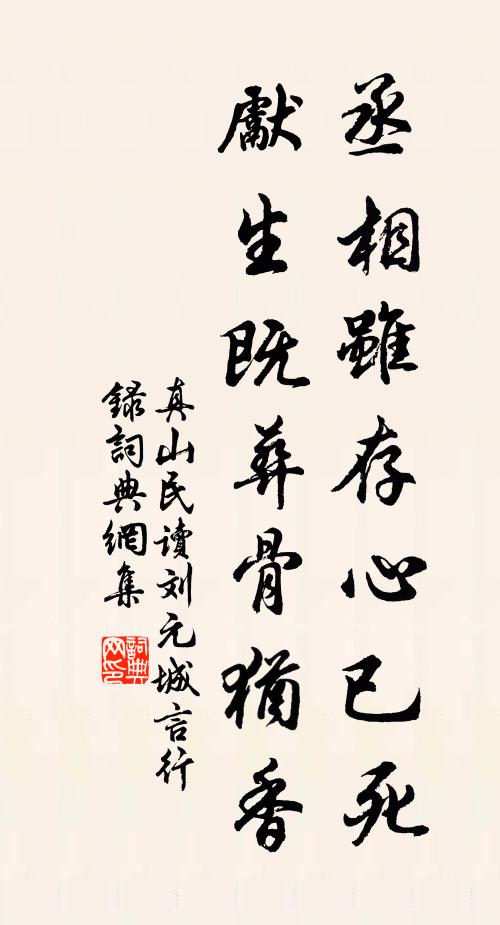 丞相雖存心已死
獻生既葬骨猶香
真山民读刘元城言行
録詞典網集
詞典网印